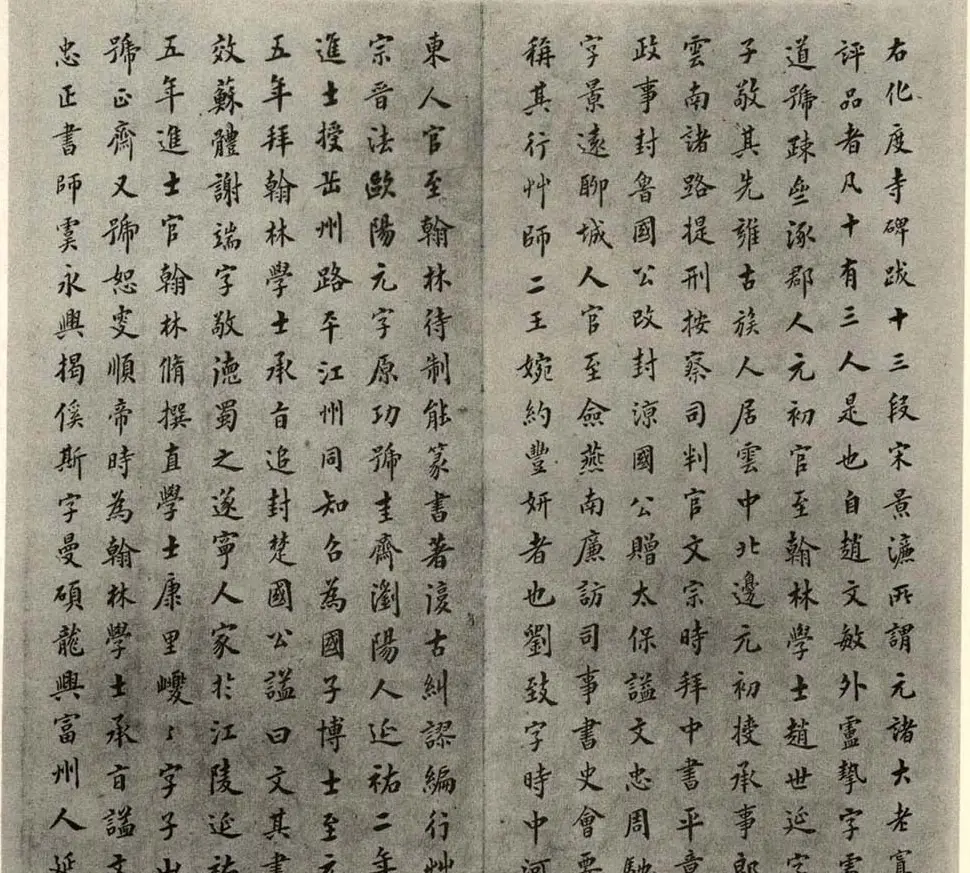 右化度寺碑跋十三段宋景濂所謂元諸大老寘
評品者凡十有三人是也自趙文敏外盧摯字
道號踈齋涿郡人元初官至翰林學士趙世延字
子敬其先雍古族人居雲中北邊元初授承事郎
雲南諸路提刑按察司判官文宗時拜中書平章
政事封魯國公改封涼國公贈太保謚文忠周馳
字景遠聊城人官至僉燕南廉訪司事書史會要
稱其行艸師二王婉約豐妍者也劉致字時中河
東人官至翰林待制能篆書著復古糾謬編行艸
宗晉法歐陽元字原功號圭齋瀏陽人延祐二年
進士授岳州路平江州同知召為國子博士至元
五年拜翰林學士承旨追封楚國公謚曰文其書
效蘇體謝端字敬德蜀之遂寧人家於江陵延祐
五年進士官翰林脩撰直學士康里巙〻字子山
號正齋又號恕叟順帝時為翰林學士承旨謚文
忠正書師虞永興揭傒斯字曼碩龍興富州人延